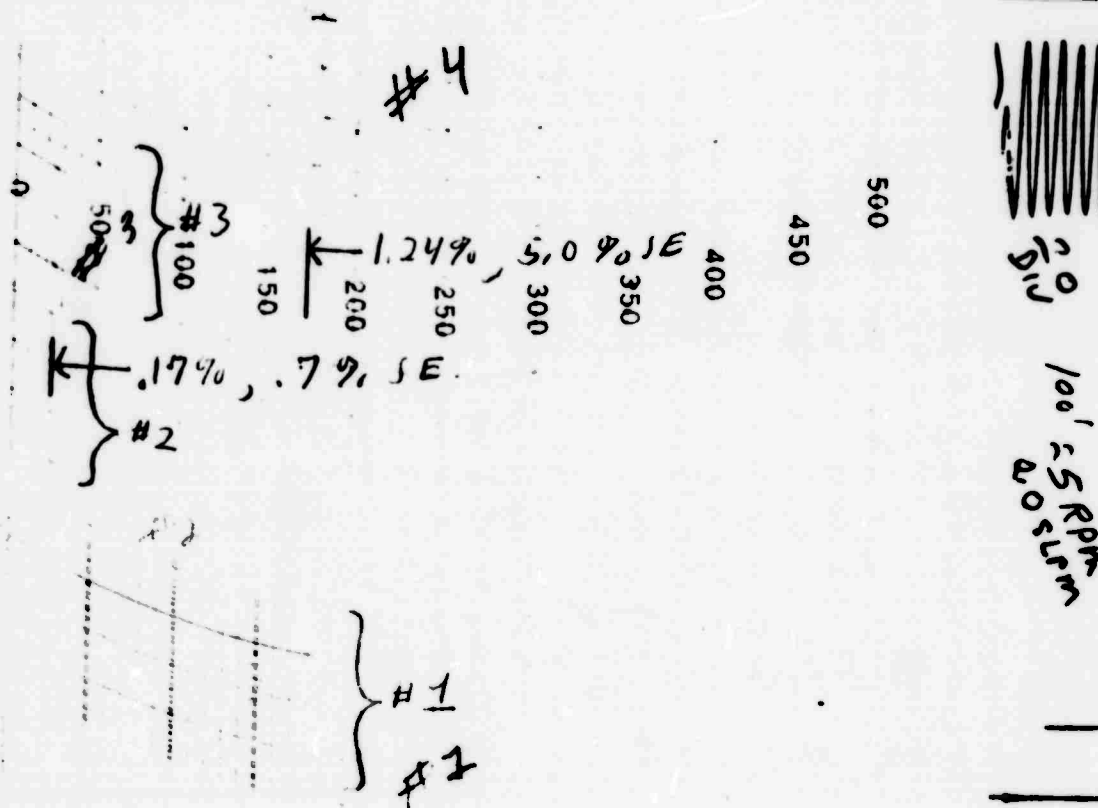 #4
0
50
3
#3
100
150
200
250
300
350
400
450
500
1.24%, 5.0 % SE
.17%, .7 % SE
#2
#1
100' = 5 RPM
2.0 SLPM
DIV